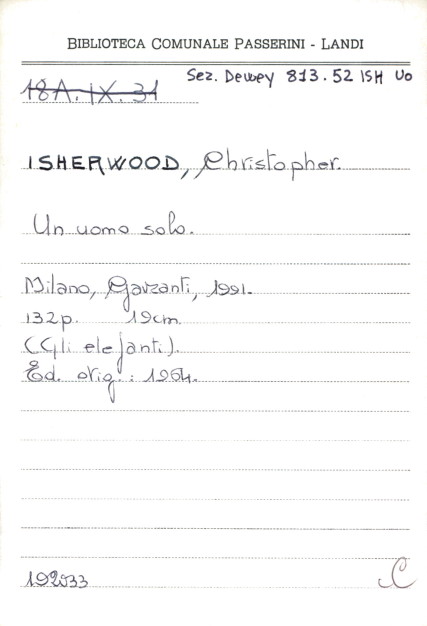 BIBLIOTECA COMUNALE PASSERINI - LANDI
Sez. Dewey 813.52 ISH Uo
18A.IX.31
ISHERWOOD, Christopher.
Un uomo solo.
Milano, Garzanti, 1991.
132p. 19cm.
(Gli elefanti).
Ed. orig.: 1964.
192033
C